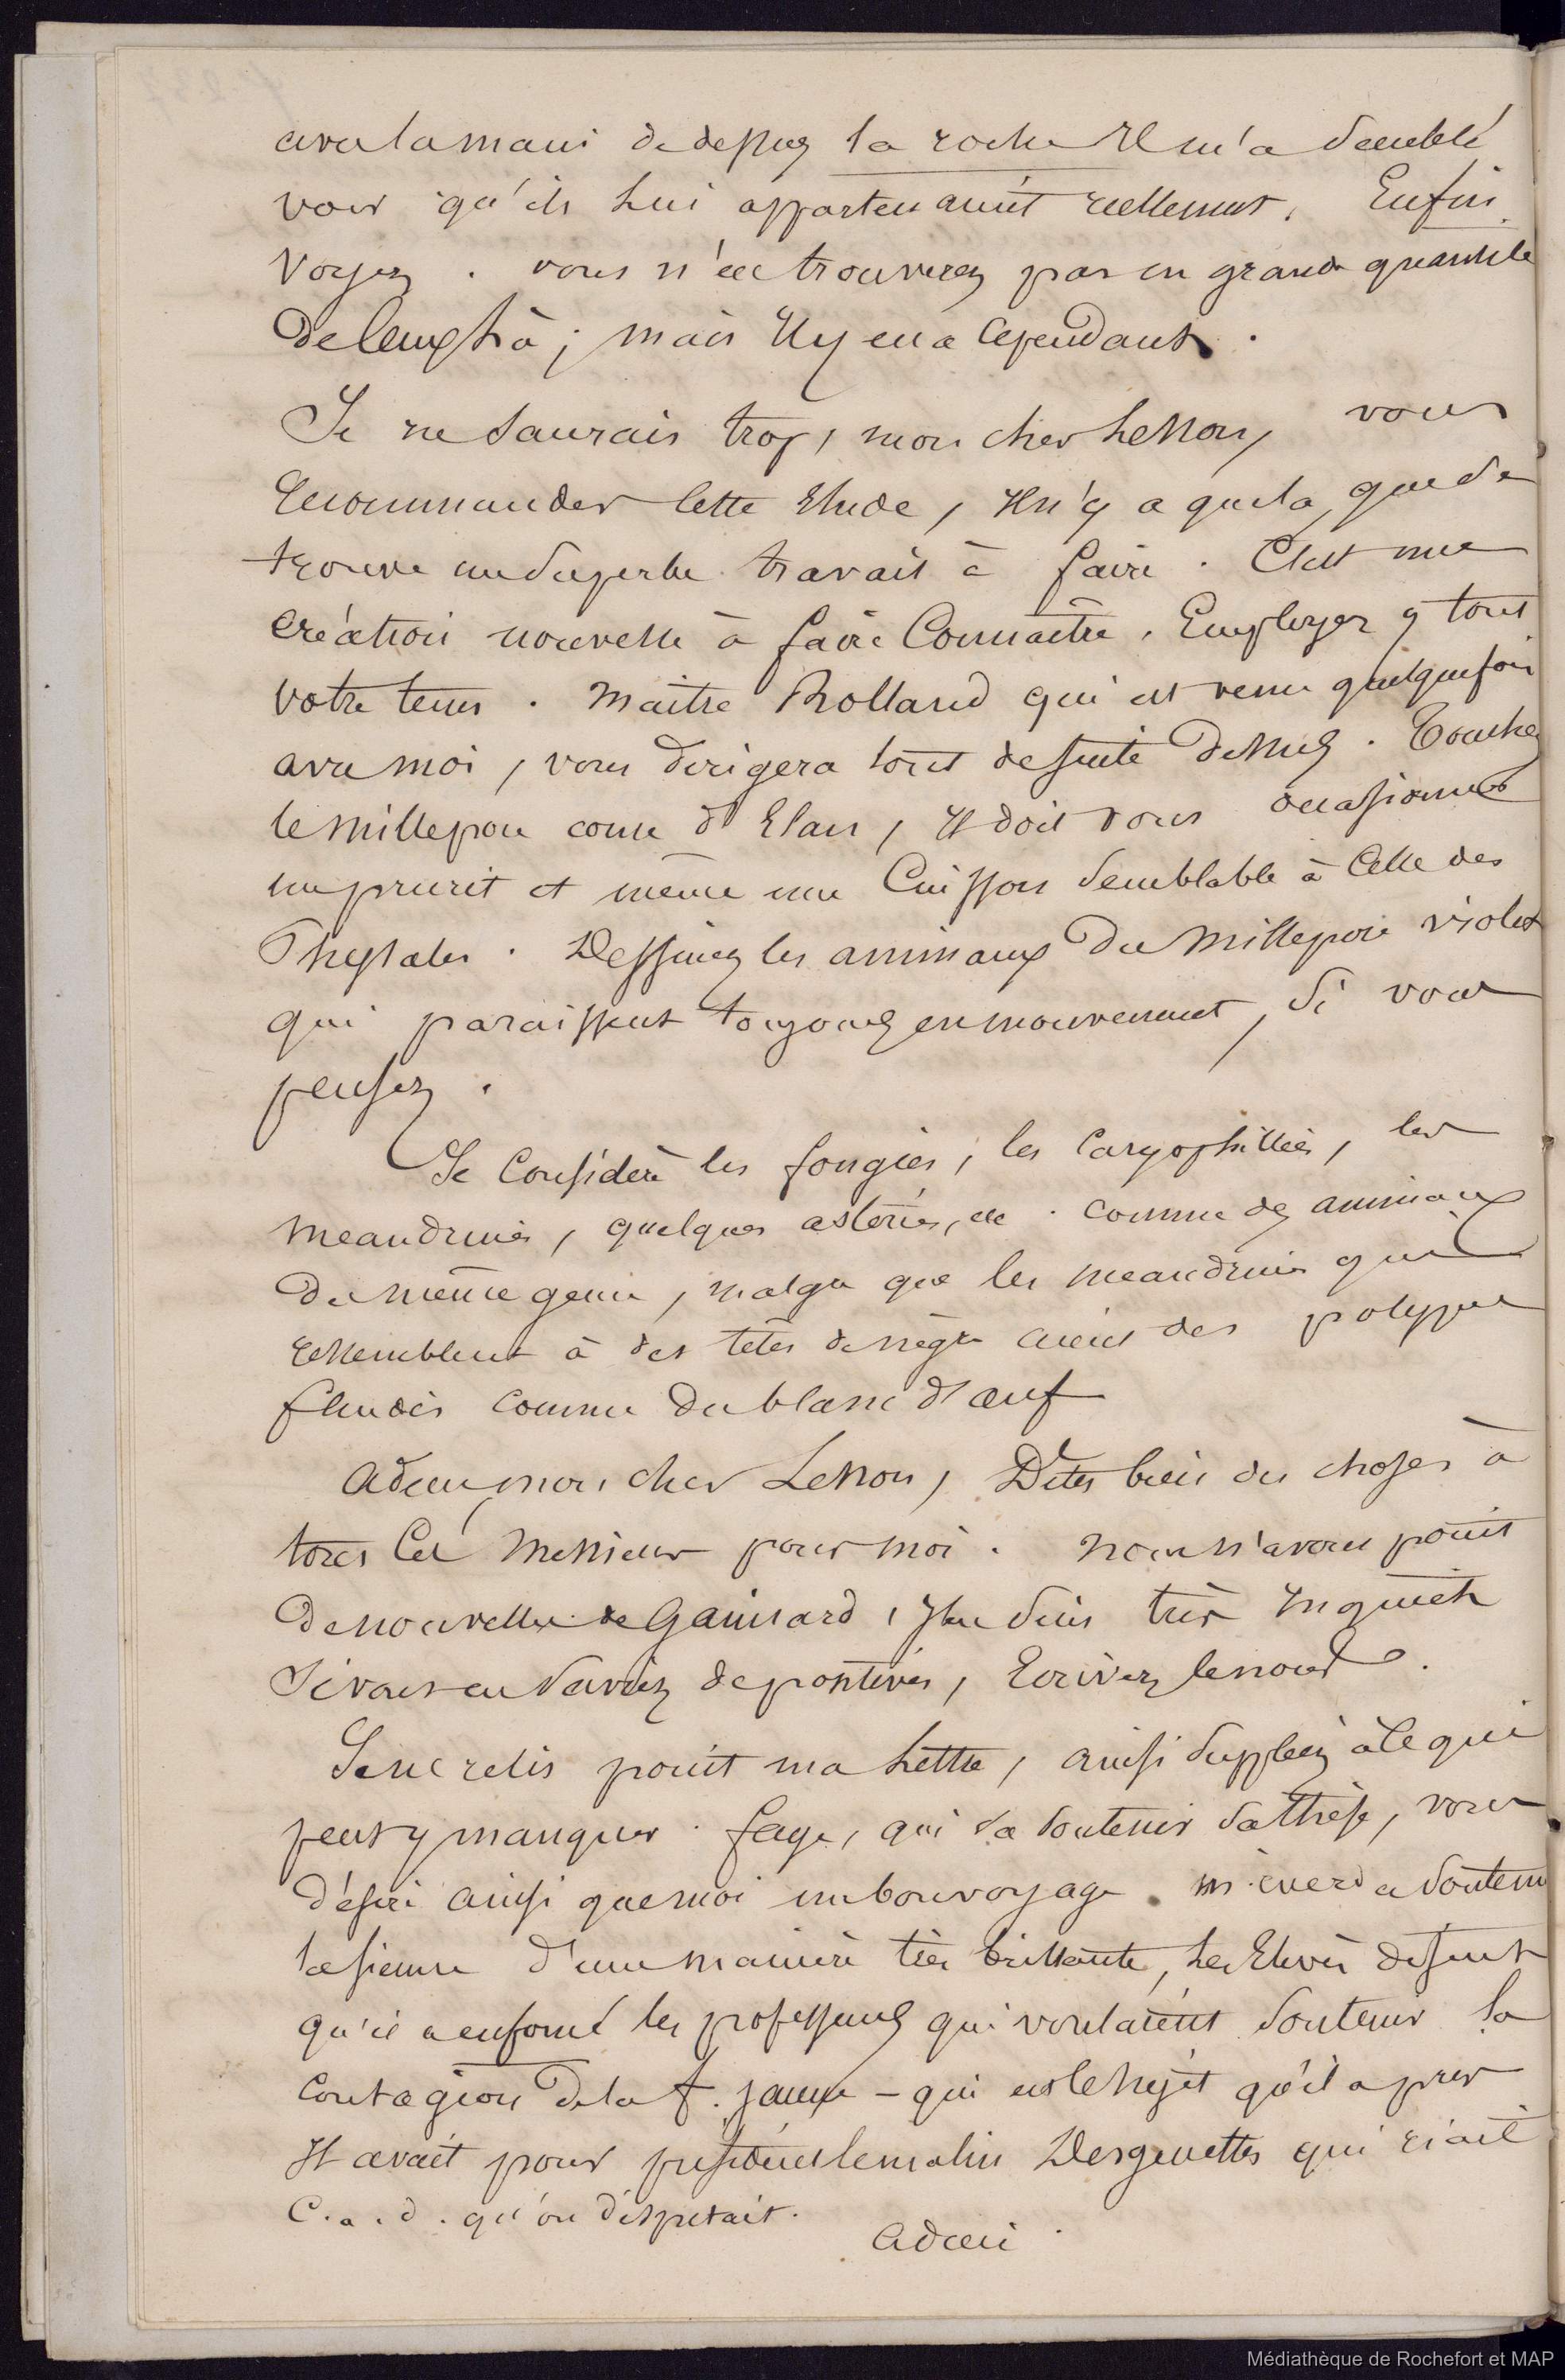 avec la main de dessus la roche Il m'a semblé
voir qu'ils lui appartenaient réellement. Enfin
voyez. vous n'en trouverez pas en grande quantité
de ceux là ; mais Il y en a cependant.
Je ne saurais trop, mon cher Lesson, vous
recommander cette Etude, Il n'y a que là, que se
trouve un superbe travail à faire. C'est une
création nouvelle à faire Connaître. Employez y tout
votre tems. Maitre Rolland qui est venu quelquefois
avec moi, vous dirigera tout de suite dessus. Touchez
le millepore corne d'Elan, Il doit vous occasionner
un prurit et même une Cuisson semblable à Celle des
Physales. Dessinez les animaux du millepore violet
qui paraissent toujours en mouvement, si vous
pensez.
Je Considère les fongies, les Caryophillies, les
meandrines, quelques astéries, etc. comme des animaux
du même genre, malgré que les meandrines qui
ressemblent à des têtes de nègre aient des polypes
fluides comme du blanc d'œuf
adieu mon cher Lesson, Dites bien des choses à
tous Ces Messieurs pour moi. nous n'avons point
de nouvelles de Gaimard, J'en suis très Inquiet
si vous en saviez de positives, Ecrivez le nous.
Je ne relis point ma Lettre, ainsi suppléez à Ce qui
peut y manquer. fage, qui va soutenir sa thèse, vous
désire ainsi que moi un bon voyage. Mr. a soutenu
la sienne d'une manière très brillante, Les Elèves disent
qu'il a enfoncé les professeurs qui voulaient soutenir la
Contagion de la f. jaune - qui est le sujet qu'il a pris
Il avait pour président le malin Desgenettes qui riait
C. a. d. qu'on disputait.
adieu.
Médiathèque de Rochefort et MAP